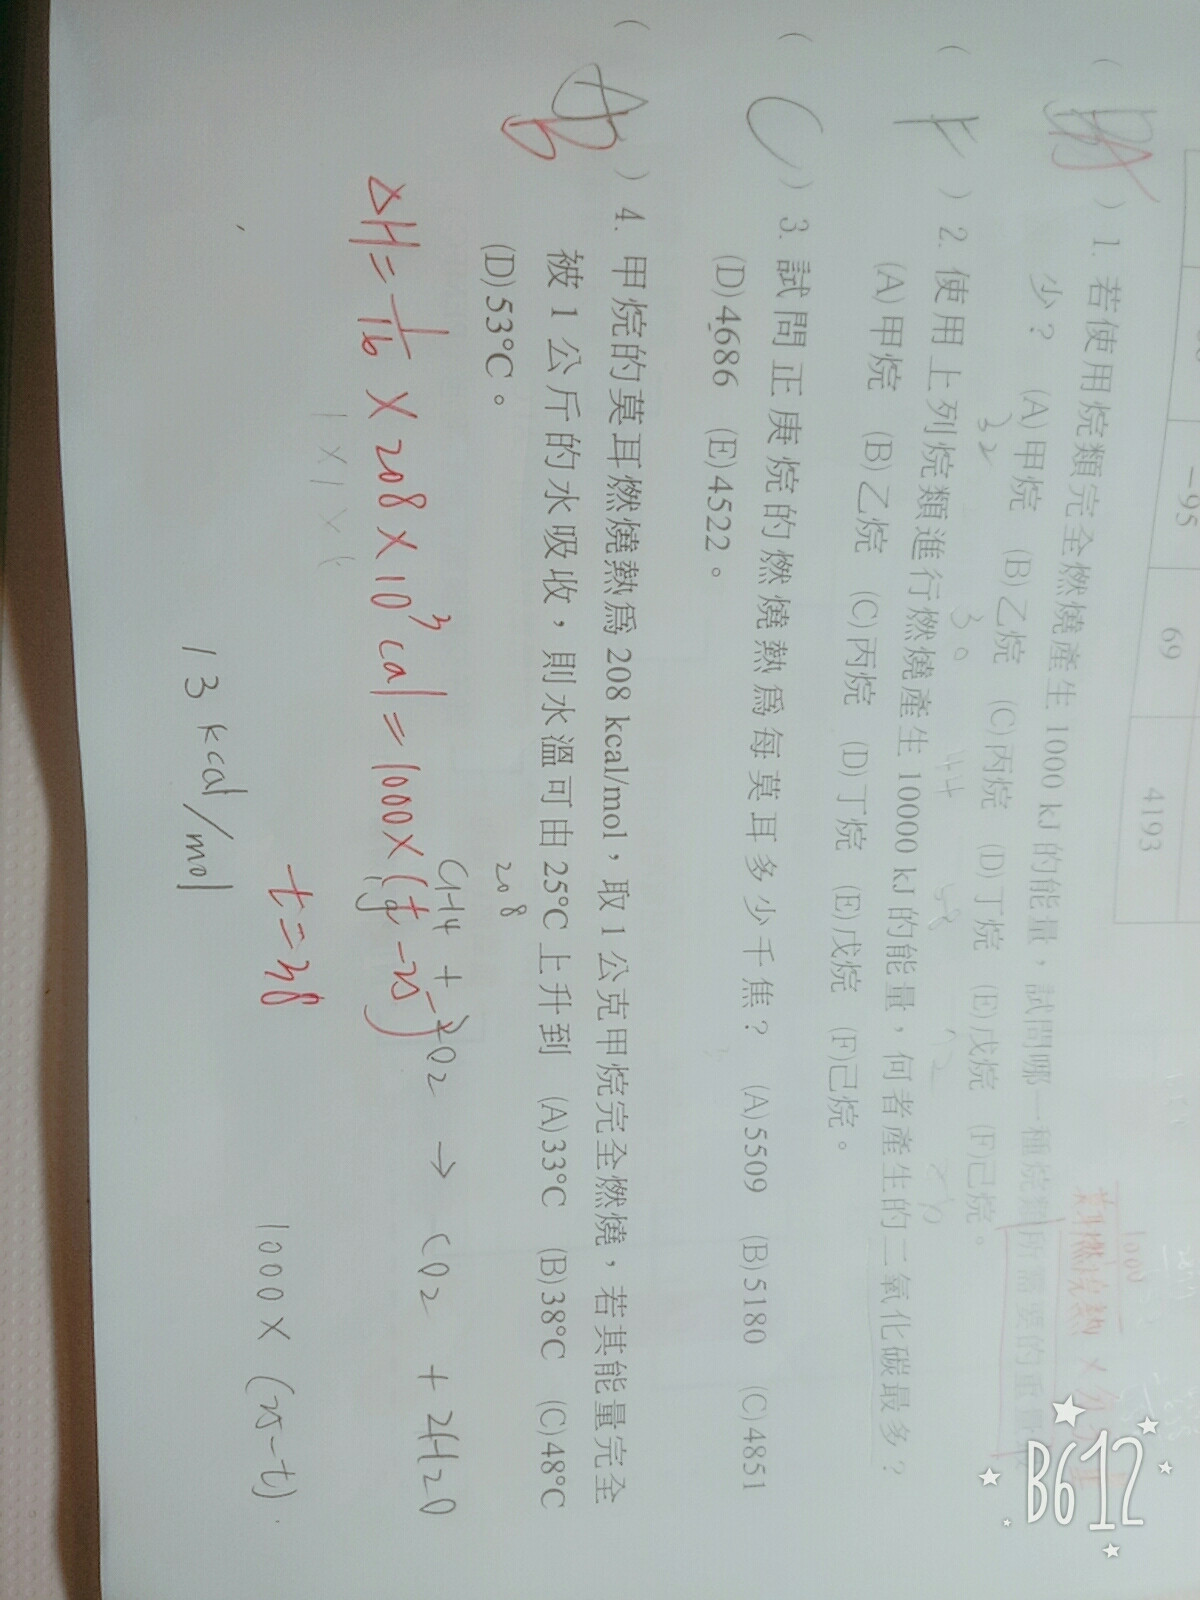 -95
69
4193
( ) 1. 若使用烷類完全燃燒產生 1000 kJ 的能量，試問哪一種烷類所需要的重量
少？ (A)甲烷 (B)乙烷 (C)丙烷 (D)丁烷 (E)戊烷 (F)己烷。
32 30 44 58 72
1000
莫耳燃燒熱 × 分子量
( ) 2. 使用上列烷類進行燃燒產生 10000 kJ 的能量，何者產生的二氧化碳最多？
(A)甲烷 (B)乙烷 (C)丙烷 (D)丁烷 (E)戊烷 (F)己烷。
( C ) 3. 試問正庚烷的燃燒熱為每莫耳多少千焦？ (A)5509 (B)5180 (C)4851
(D)4686 (E)4522。
( B ) 4. 甲烷的莫耳燃燒熱為 208 kcal/mol，取 1 公克甲烷完全燃燒，若其能量完全
被 1 公斤的水吸收，則水溫可由 25°C 上升到 (A)33°C (B)38°C (C)48°C
(D)53°C。
208
CH4 + 2O2 → CO2 + 2H2O
1g
ΔH = 1/16 × 208 × 10³ cal = 1000 × (t - 25)
t = 38
1000 × (25 - t)
13 kcal/mol
B612